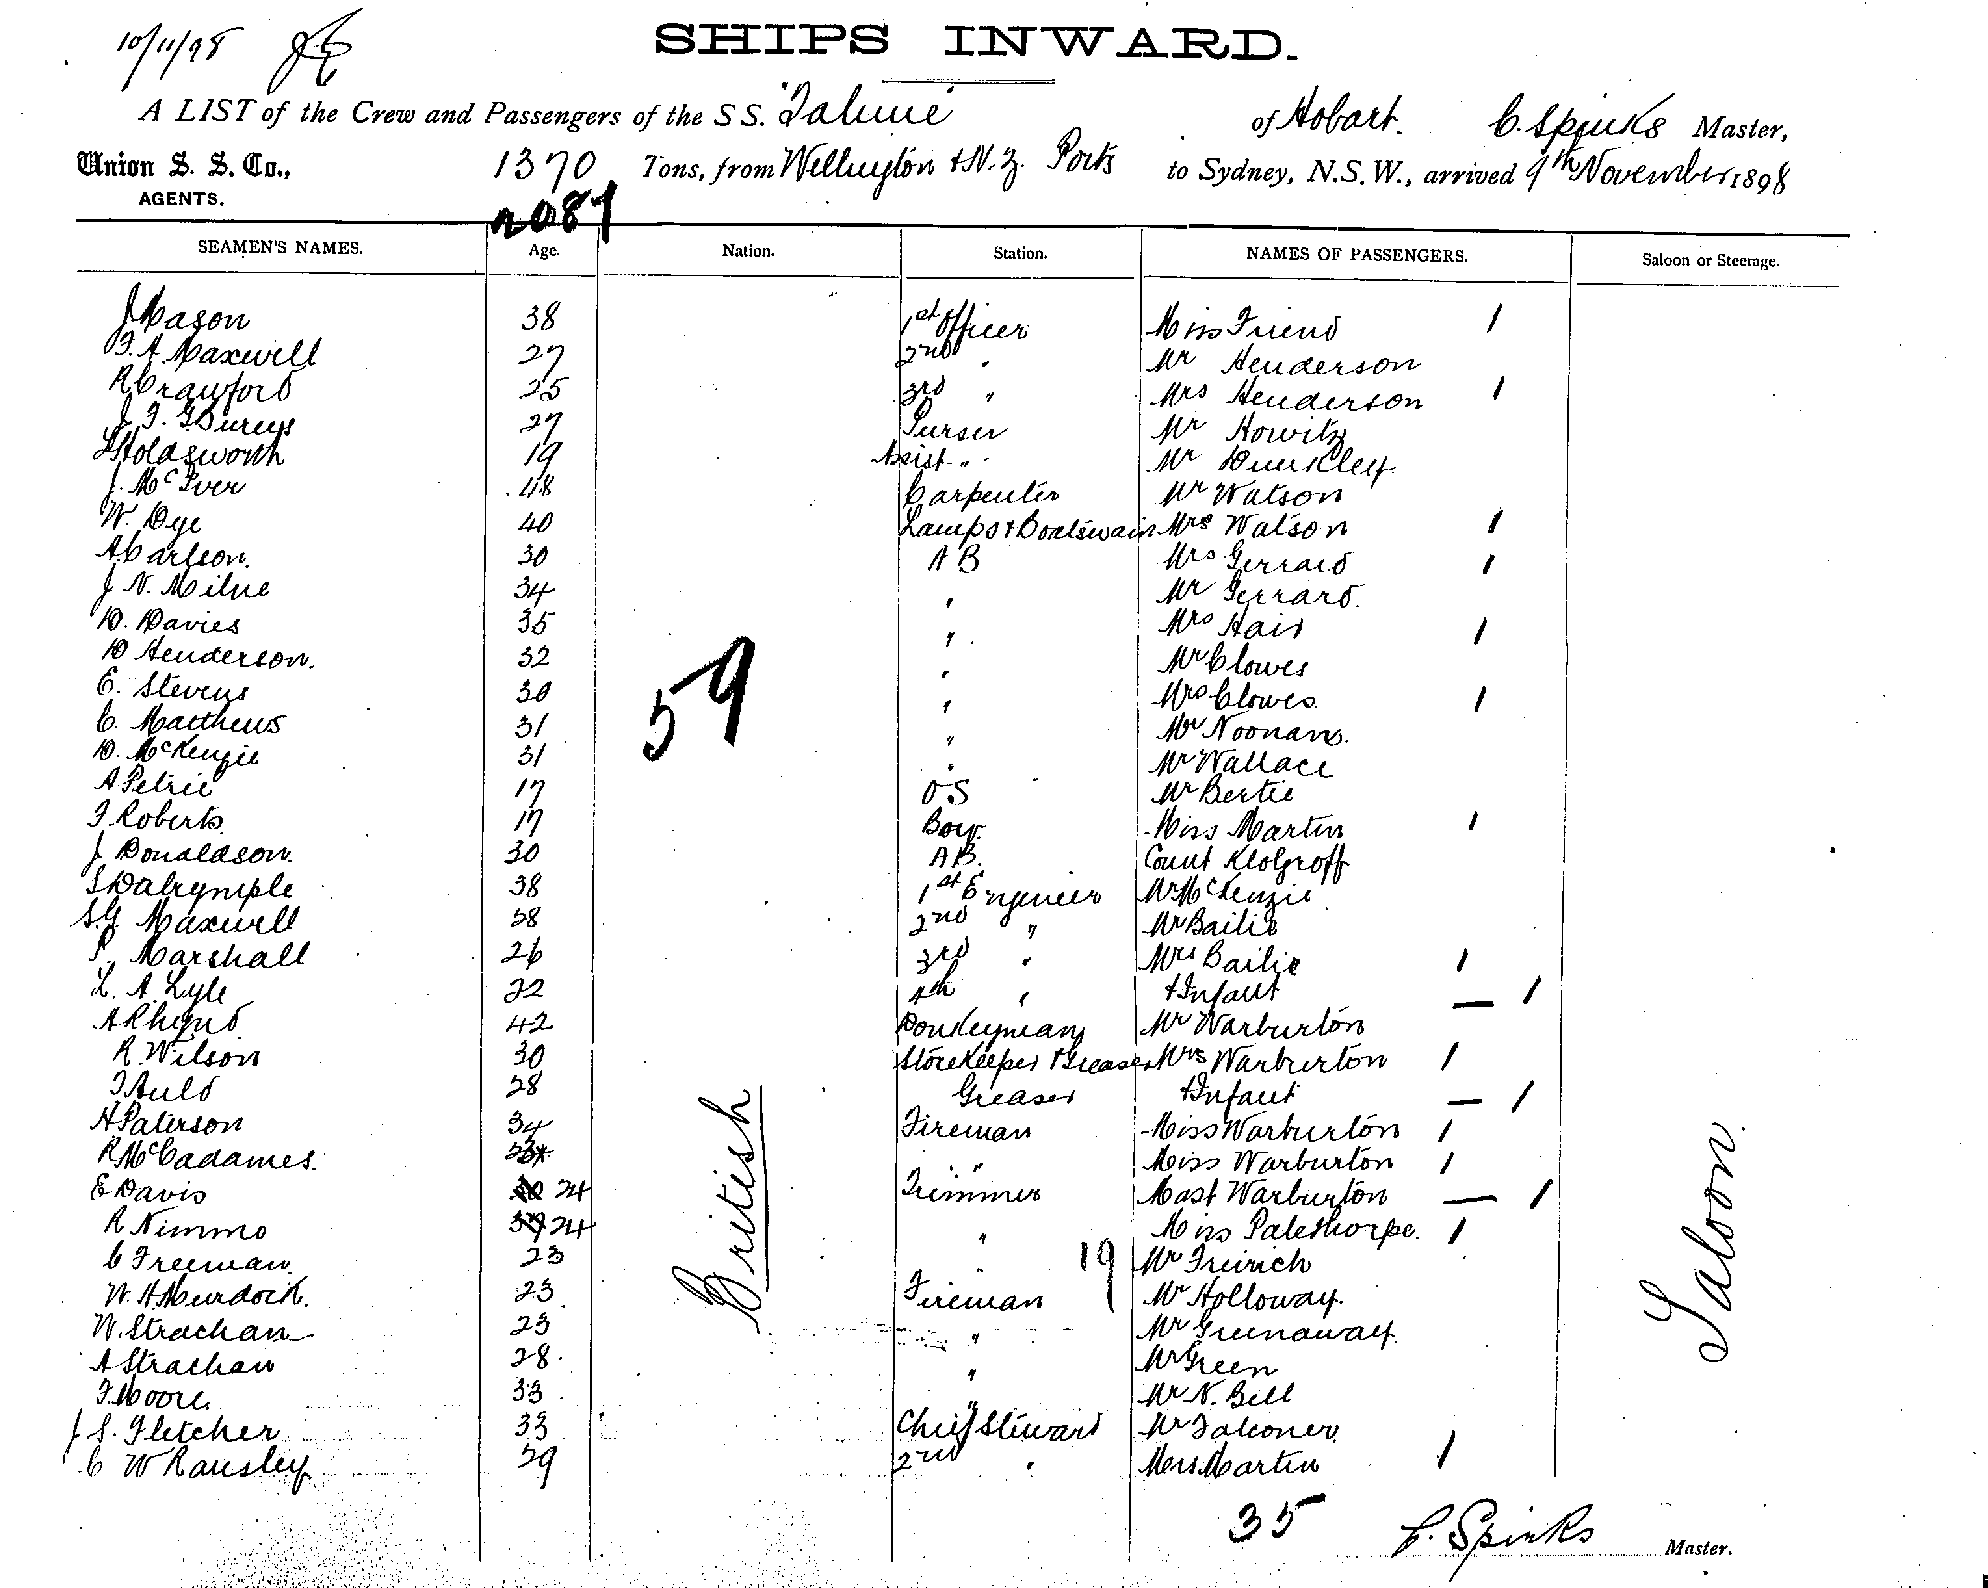 10/11/98
SHIPS INWARD.
A LIST of the Crew and Passengers of the S S. "Talune" of Hobart. C. Spinks Master,
Union S. S. Co., 1370 Tons, from Wellington & N. Z. Ports to Sydney, N.S.W., arrived 9th November 1898
AGENTS.
2089
SEAMEN'S NAMES. Age. Nation. Station. NAMES OF PASSENGERS. Saloon or Steerage.
J Mason 38 1st Officer Miss Friend 1
A. Maxwell 27 2nd " Mr Henderson
R Crawford 25 3rd " Mrs Henderson 1
27 Purser Mr Howitz
Holdsworth 19 Assist " Mr Dunkley
J. McIver 48 Carpenter Mr Watson
W. Dye 40 Lamps & Boatswain Mrs Watson 1
A Carlson. 30 A B Mrs Gerrard 1
J N. Milne 34 " Mr Gerrard.
D. Davies 35 " Mrs Hair 1
D Henderson. 32 " Mr Clowes
E. Stevens 30 " Mrs Clowes. 1
C. Matthews 31 " Mr Noonan.
D. McKenzie 31 " Mr Wallace
A Petrie 17 O S Mr Bertie
Roberts 17 Boy Miss Martin 1
J Donaldson. 30 A B. Count
Dalrymple 38 1st Engineer Mr McKenzie
S. G Maxwell 38 2nd " Mr Bailie
P. Marshall 26 3rd " Mrs Bailie 1
L. A. Lyle 22 4th " & Infant — 1
A Rhynd 42 Donkeyman Mr Warburton
R. Wilson 30 Storekeeper & Greaser Mrs Warburton 1
Auld 28 Greaser & Infant — 1
H Paterson 34 Fireman Miss Warburton 1
R McCadames. " Miss Warburton 1
E Davis 24 Trimmer Mast Warburton — 1
R Nimmo 24 " Miss Palethorpe. 1
C Freeman. 23 " 19 Mr
W. H Murdoch. 23 Fireman Mr Holloway.
W. Strachan 23 " Mr Greenaway.
A Strachan 28. " Mr Green
Moore. 33 " Mr N. Bell
J S. Fletcher 33 Chief Steward Mr Falconer
C W Ransley 29 2nd " Miss Martin 1
59
British
Saloon.
35 C. Spinks Master.